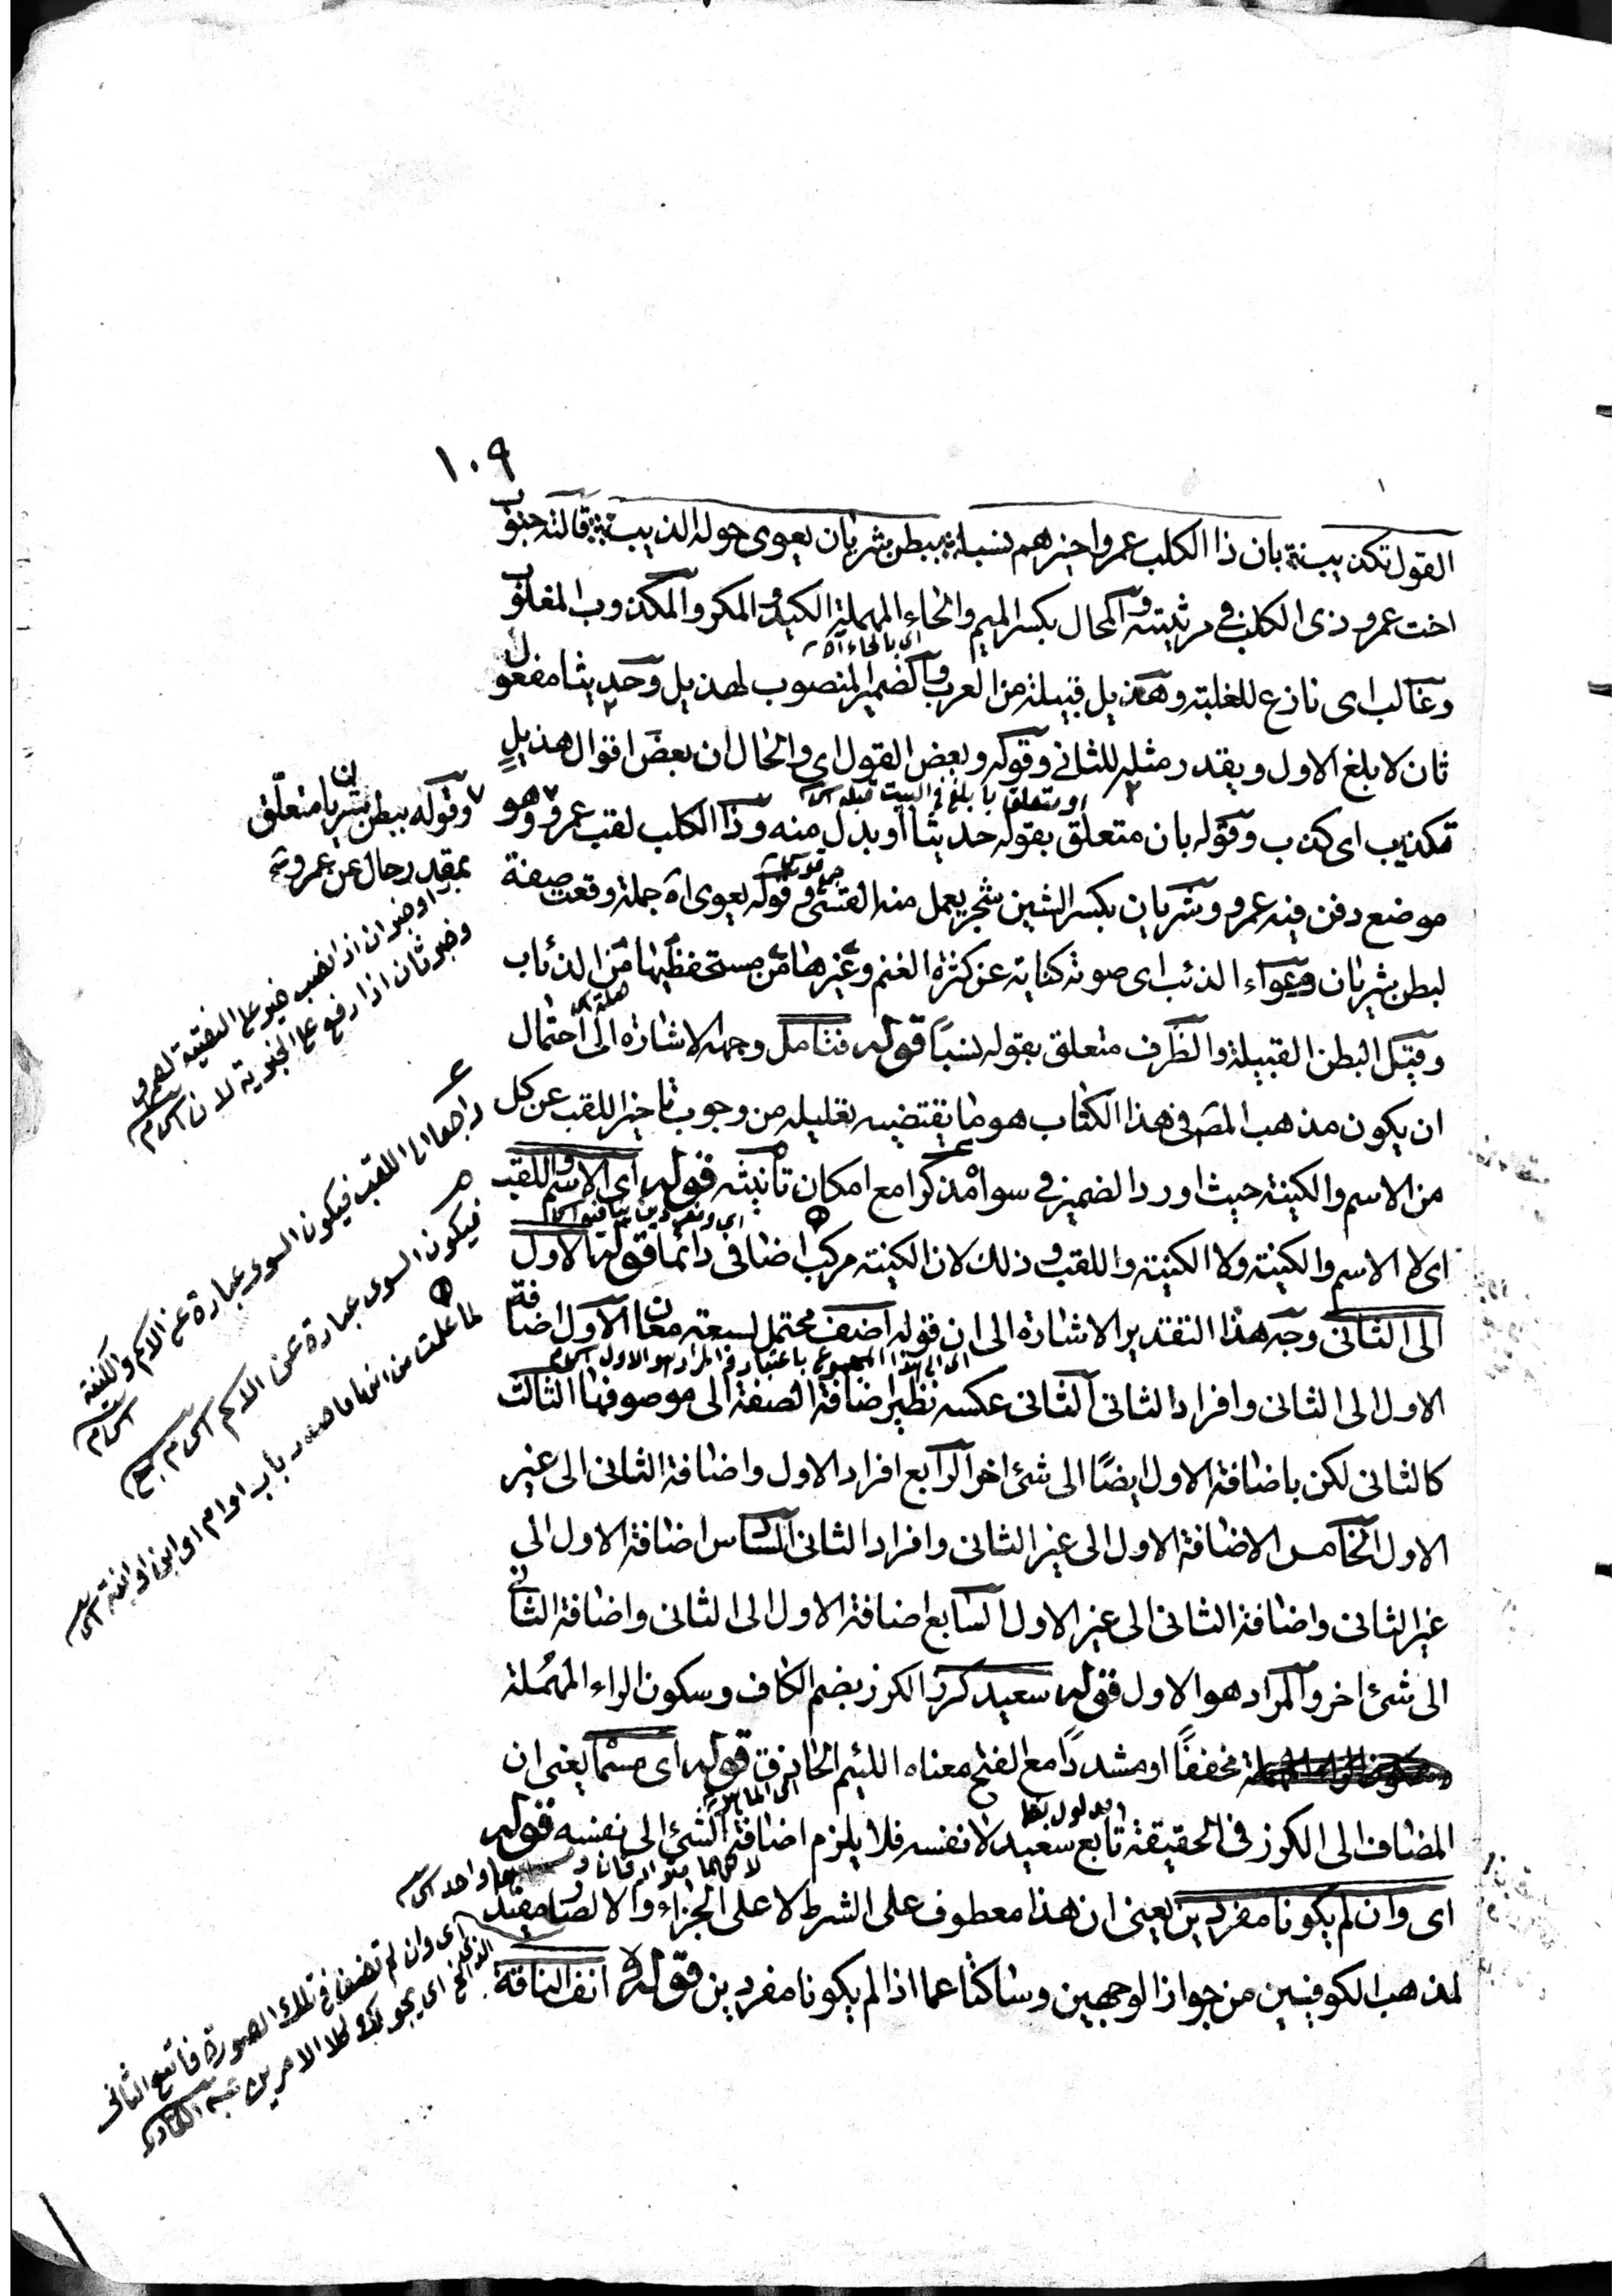 ١٠٩
القول تكذيب ؞ بان ذا الكلب عمروا خيرهم نسبا ؞ ببطن شريان يعوى حوله الذيب ؞ قالته جنوب
اخت عمرو ذى الكلب فى مرثيته و المحال بكسر الميم والحاء المهملة الكيد والمكر والمكذوب المغلوب
وغالب اى نازع للغلبة وهذيل قبيلة من العرب والضمير المنصوب لهذيل وحديثا مفعول
ثان لابلغ الاول ويقدر مثله للثانى وقوله وبعض القول اى والحال ان بعض اقوال هذيل
او متعلق بابلغ فى البيت قبله
تكذيب اى كذب وقوله بان متعلق بقوله حديثا او بدل منه وذا الكلب لقب عمرو وهو
موضع دفن فيه عمرو وشريان بكسر الشين شجر يعمل منه القسى وقوله يعوى اه جملة وقعت صفة
لبطن شريان وعواء الذئب اى صوته كناية عن كثرة الغنم وغيرها من مستحفظيها من الذئاب
وقيل البطن القبيلة والظرف متعلق بقوله نسبًا قوله فتأمل وجهه الاشارة الى احتمال
ان يكون مذهب المصـ فى هذا الكتاب هو ما يقتضيه تعليله من وجوب تاخير اللقب عن كل
من الاسم والكنية حيث اورد الضمير فى سواه مذكرا مع امكان تأنيثه قوله اى الاسم واللقب
اى لا الاسم والكنية ولا الكنية واللقب و ذلك لان الكنية مركب اضافى دائما قوله الاول
الى الثانى وجه هذا التقدير الاشارة الى ان قوله اضف محتمل لسبعة معان الاول اضافة
الاول الى الثانى وافراد الثانى الثانى عكسه نظير اضافة الصفة الى موصوفها الثالث
كالثانى لكن باضافة الاول ايضًا الى شئ اخر الرابع افراد الاول واضافة الثانى الى غير
الاول الخامس الاضافة الاول الى غير الثانى وافراد الثانى السادس اضافة الاول الى
غير الثانى واضافة الثانى الى غير الاول السابع اضافة الاول الى الثانى واضافة الثانى
الى شئ اخر والمراد هو الاول قوله سعيد كرز الكرز بضم الكاف وسكون الراء المهملة
مخففًا او مشددًا مع الفتح معناه اللئيم الحاذق قوله اى مسما يعنى ان
المضاف الى الكرز فى الحقيقة تابع سعيد لا نفسه فلا يلزم اضافة الشئ الى نفسه قوله
اى وان لم يكونا مفردين يعنى ان هذا معطوف على الشرط لا على الجزاء والا لصار مفيد
لمذهب الكوفيين من جواز الوجهين وساكتا عما اذا لم يكونا مفردين قوله و انف الناقة
وقوله ببطن شريان متعلق
بمقدر حال عن عمرو
وخبر ثان اذا رفع على الخبرية لان
راجعا الى اللقب فيكون السوى عبارة عن الاسم والكنية
فيكون السوى عبارة عن الاسم
لما علمت من انها ما صدر باب او ام او ابن او ابنة
اى وان لم تضفا فى تلك الصورة فاتبع الثانى